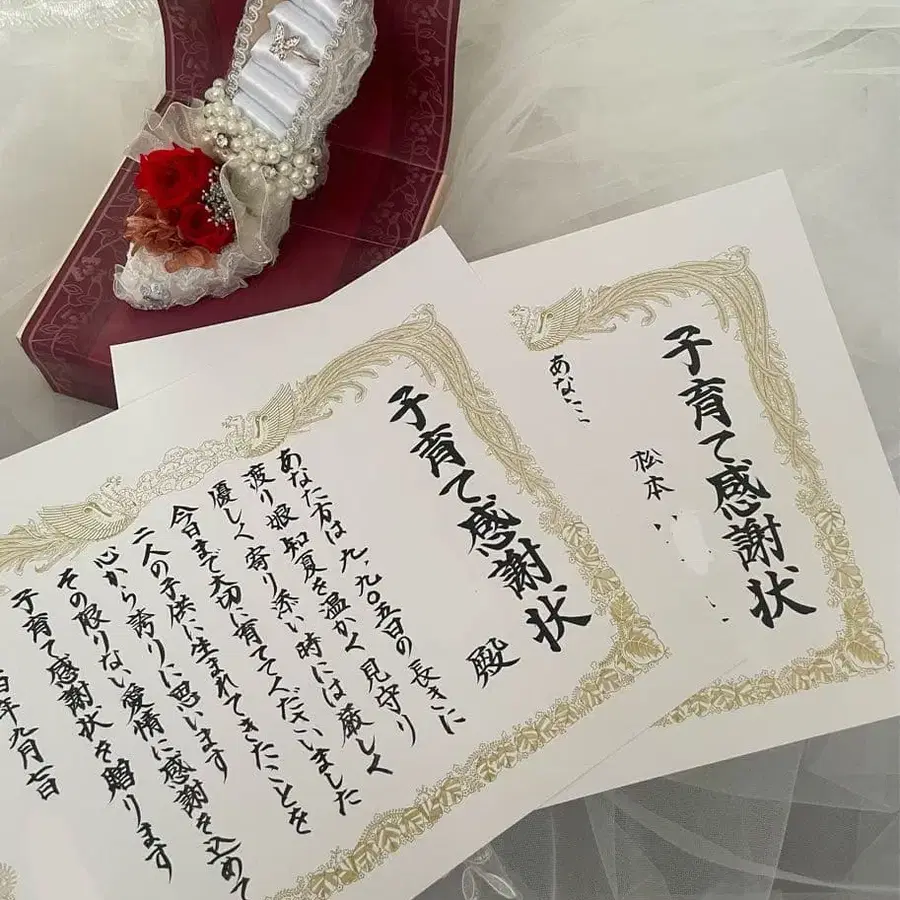 子育て感謝状
松本
あな
子育て感謝状
殿
あなた方は九、九〇五日の長きに
渡り娘知夏を温かく見守り
優しく寄り添い時には厳しく
今日まで大切に育ててくださいました
二人の子供に生まれてきたことを
心から誇りに思います
その限りない愛情に感謝を込めて
子育て感謝状を贈ります
年九月七日